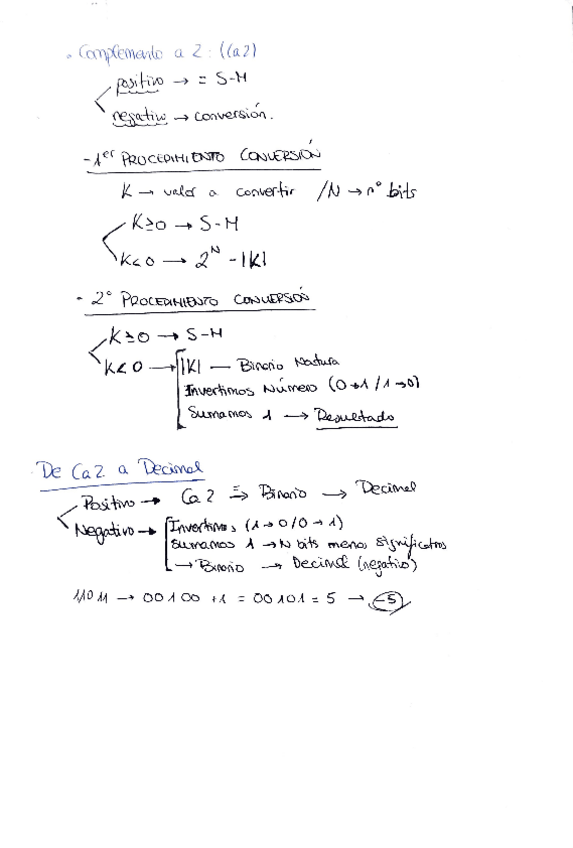 • Complemento a 2: (Ca2)
positivo → = S-M
negativo → conversión.
- 1er PROCEDIMIENTO CONVERSIÓN
K → valor a convertir / N → nº bits
K≥0 → S-M
K<0 → 2^N - |K|
- 2º PROCEDIMIENTO CONVERSIÓN
K≥0 → S-M
K<0 → |K| — Binario Natura
Invertimos Número (0→1 / 1→0)
Sumamos 1 → Resultado
De Ca2 a Decimal
Positivo → Ca2 => Binario → Decimal
Negativo → Invertimos (1→0/0→1)
Sumamos 1 → N bits menos significativos
→ Binario → Decimal (negativo)
11011 → 00100 +1 = 00101 = 5 → -5